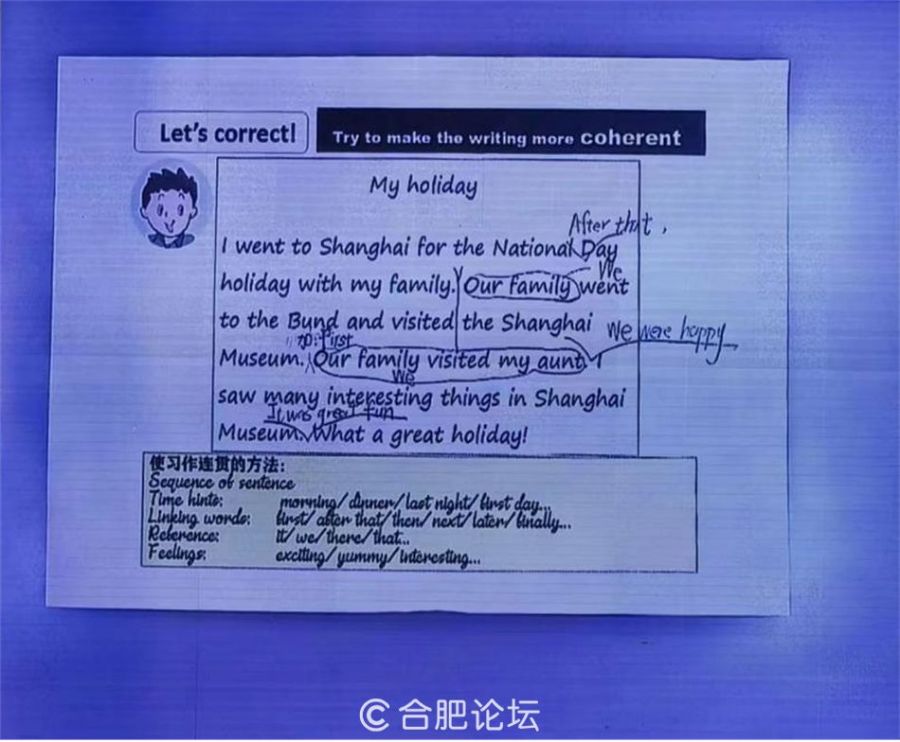 Let's correct!
Try to make the writing more coherent
My holiday
After that,
I went to Shanghai for the National Day
We
holiday with my family. Our family went
to the Bund and visited the Shanghai
We were happy
First
Museum. Our family visited my aunt. I
We
saw many interesting things in Shanghai
It was great fun
Museum. What a great holiday!
使习作连贯的方法:
Sequence of sentence
Time hints: morning/ dinner/ last night/ first day...
Linking words: first/ after that/ then/ next/ later/ finally...
Reference: it/ we/ there/ that...
Feelings: exciting/ yummy/ interesting...
合肥论坛